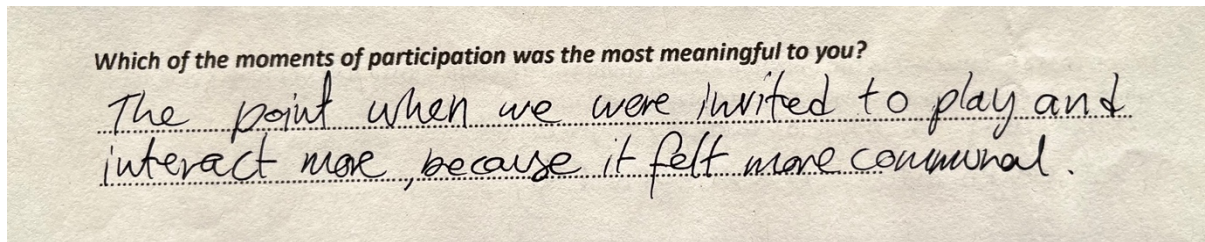 Which of the moments of participation was the most meaningful to you?
The point when we were invited to play and
interact more, because it felt more communal.